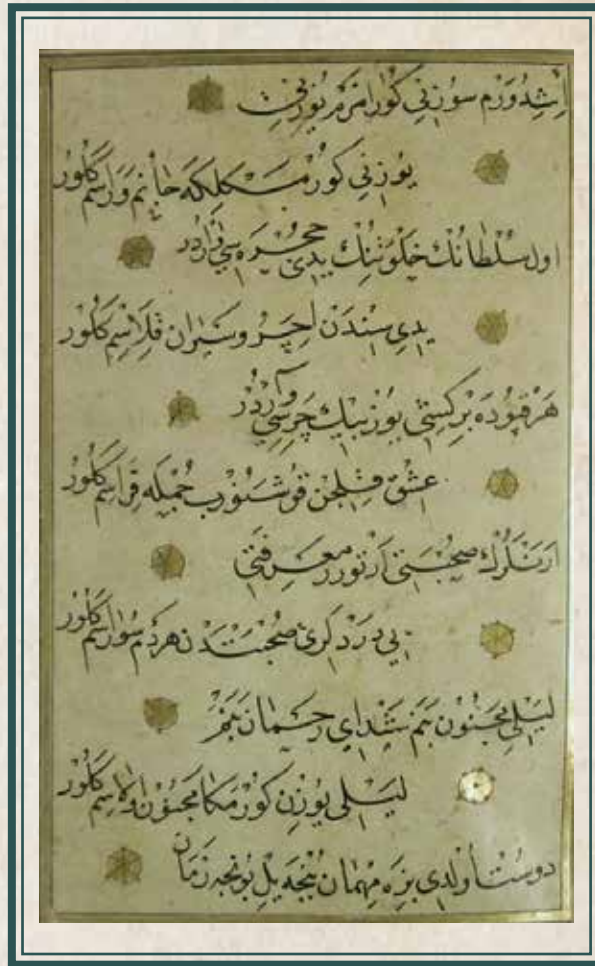 اِشِدُورَم سوزني كورامزم يوزني
يوزني كورمكلكه جانم وَرَاسم كلور
اول سلطانك خلوتنك يدي حجره سي واردر
يدي سندن اچرو سيران قلاسم كلور
هر قپوده بر كشي يوز بيك چرسي واردر
عشق قلجن قوشنوب جمله قراسم كلور
ارنلرك صحبتي آرتورر معرفتي
بي دردلري صحبتدن هر دم سوراسم كلور
ليلي مجنون بنم شيداي رحمان بنم
ليلي يوزن كورمكا مجنون اولاسم كلور
دوست اولدي بزه مهمان بنجه ييل بونجه زمان